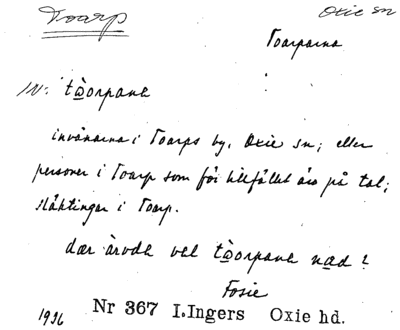 Toarp
Oxie sn
Toarparna
IN: tòorpana
invånarna i Toarps by, Oxie sn; eller
personer i Toarp som för tillfället äro på tal;
släktingar i Toarp.
dær ärvde vel tòorpana nad?
Fosie
1936 Nr 367 I.Ingers Oxie hd.